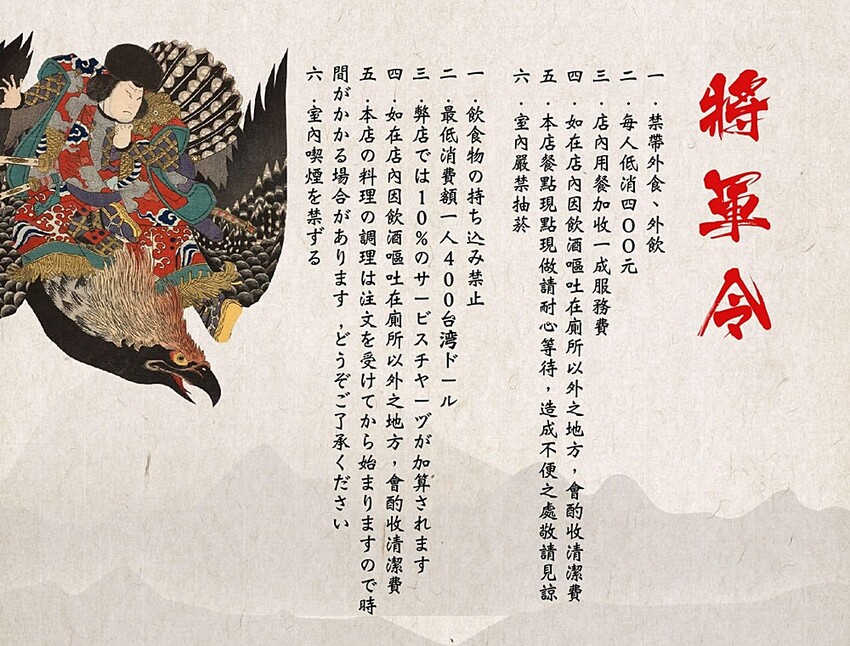 將軍令
一．禁帶外食、外飲
二．每人低消四００元
三．店內用餐加收一成服務費
四．如在店內因飲酒嘔吐在廁所以外之地方，會酌收清潔費
五．本店餐點現點現做請耐心等待，造成不便之處敬請見諒
六．室內嚴禁抽菸
一．飲食物の持ち込み禁止
二．最低消費額一人４００台湾ドール
三．弊店では１０％のサービスチャーヅが加算されます
四．如在店內因飲酒嘔吐在廁所以外之地方，會酌收清潔費
五．本店の料理の調理は注文を受けてから始まりますので時
間がかかる場合があります，どうぞご了承ください
六．室內喫煙を禁ずる